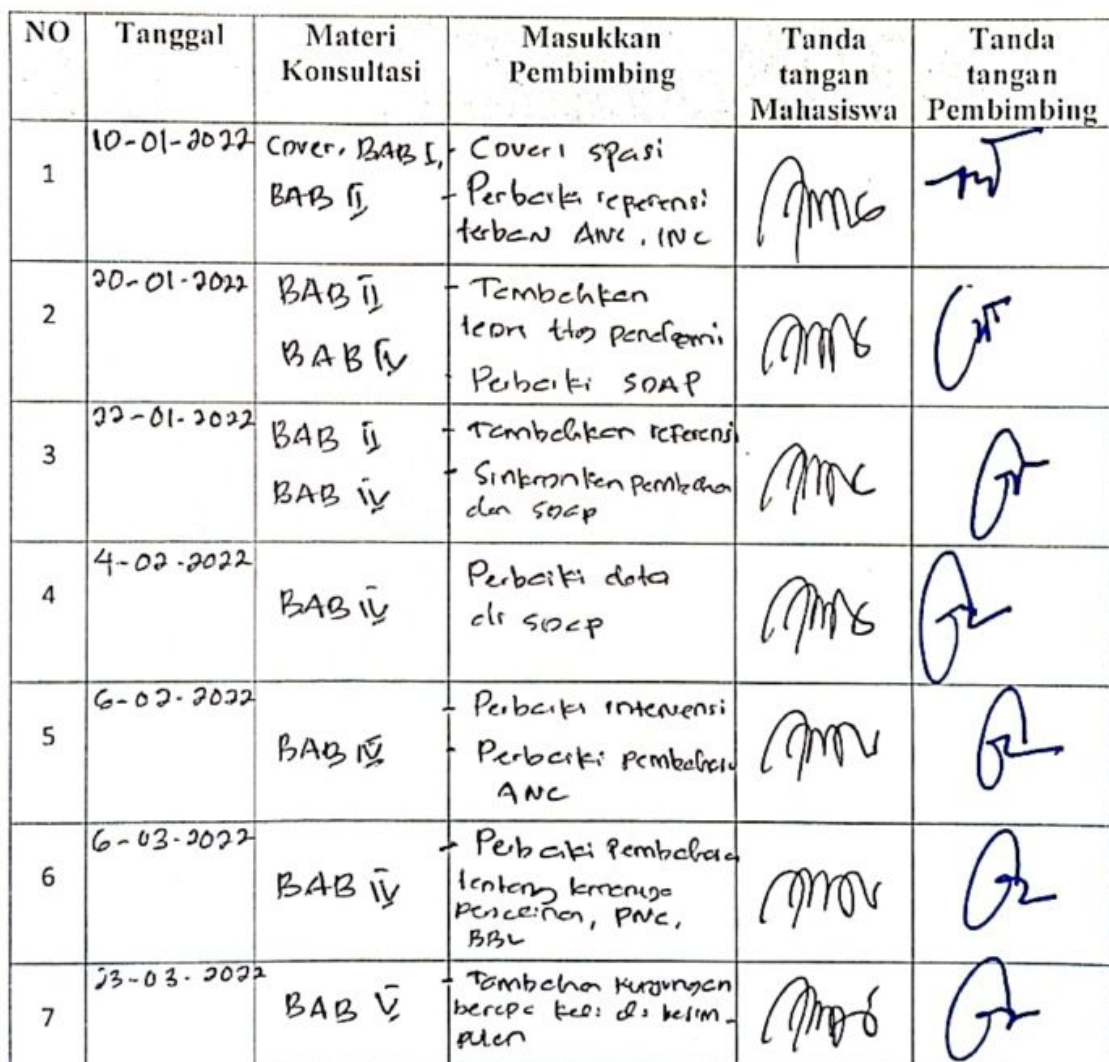 NO Tanggal Materi Konsultasi Masukkan Pembimbing Tanda tangan Mahasiswa Tanda tangan Pembimbing
1 10-01-2022 Cover, BAB I, - Cover 1 spasi
BAB II - Perbaiki referensi
ANC, INC
2 20-01-2022 BAB II - Tambahkan
teori
BAB IV - Perbaiki SOAP
3 22-01-2022 BAB II - Tambahkan referensi
BAB IV - Sinkronkan pembaha
dan soap
4 4-02-2022 BAB IV Perbaiki data
di soap
5 6-02-2022 BAB IV - Perbaiki intervensi
- Perbaiki pembahasan
ANC
6 6-03-2022 BAB IV - Perbaiki Pembahasa
tentang
PNC,
BBL
7 23-03-2022 BAB V - kunjungan
berapa kali di kesim-
pulan